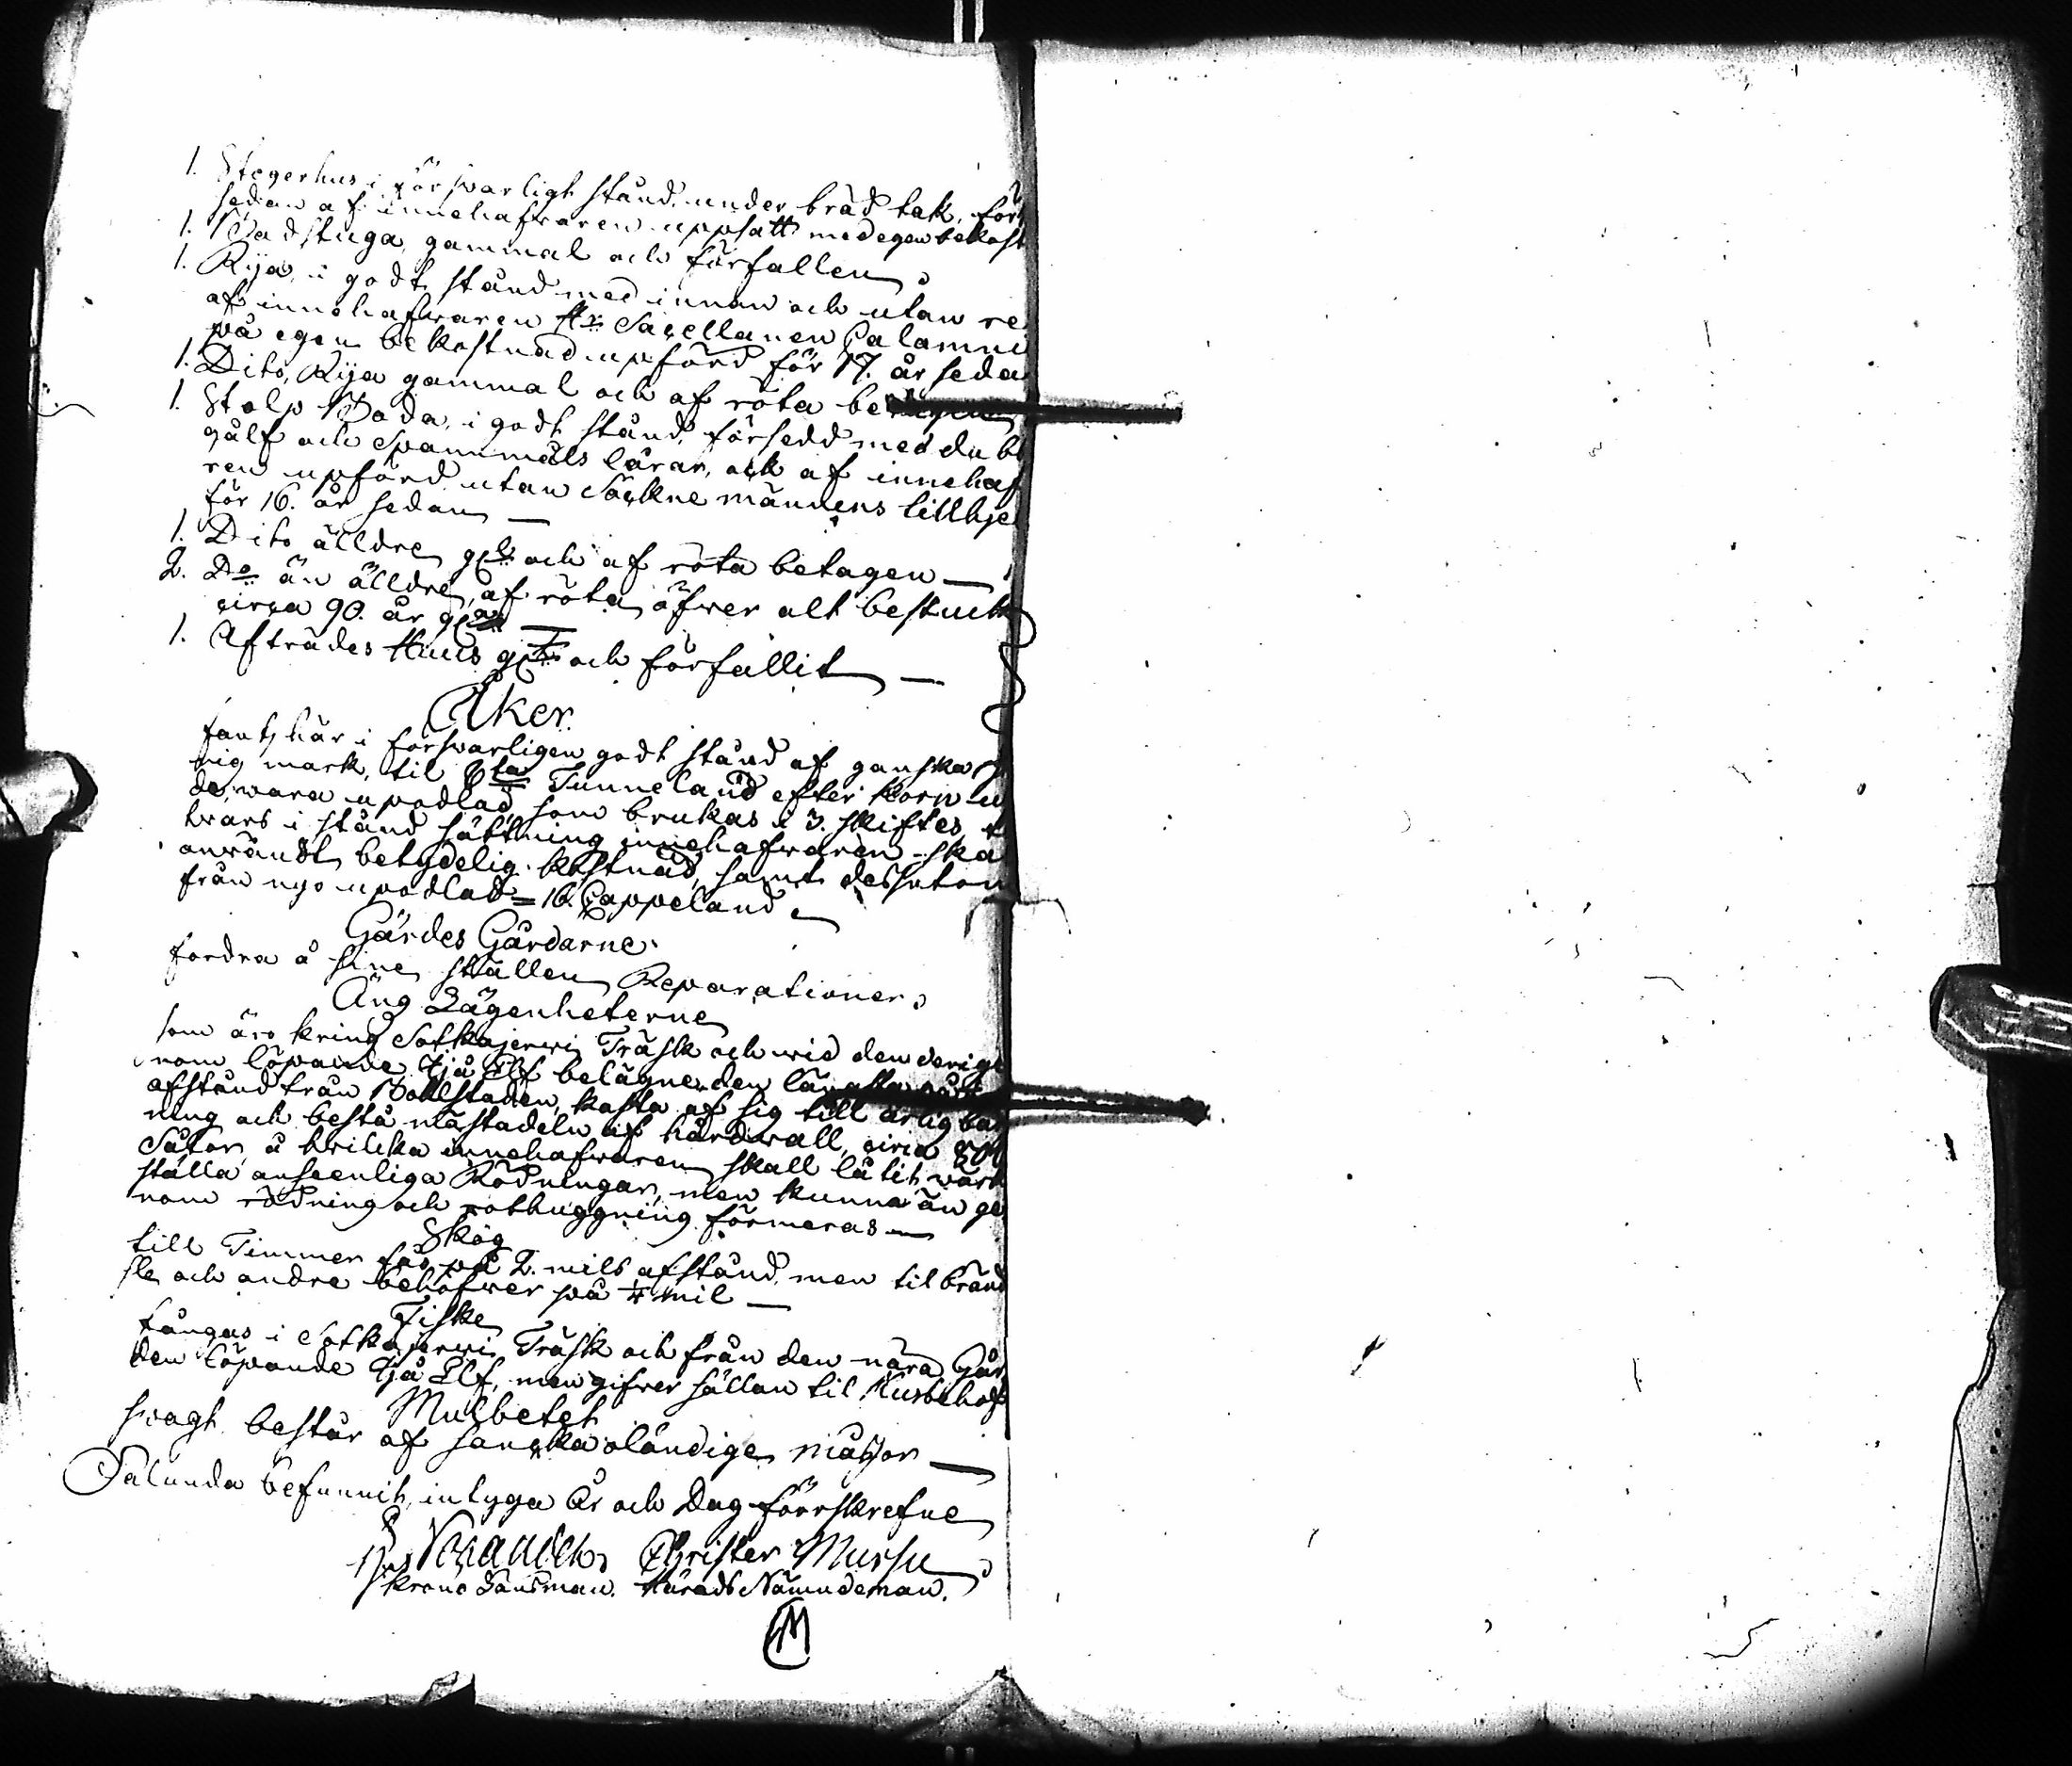 1. Stegerhus i försvarligt stånd under bräd tak, för
sedan af innehafvaren uppsatt med egen bekost
1. Badstuga, gammal och förfallen
1. Rija, i godt stånd med innan och utan re
af innehafvaren Hr Sacellanen Calamni
på egen bekostnad upförd för 17. år seda
1. Dito, Rija gammal och af röta betagen
1. Stolp Boda, i godt stånd, försedd med du
gålf och Spannmåls lårar, ock af innehaf
ren upförd utan Säckne männens tillhje
för 16. år sedan —
1. Dito älldre gl och af röta betagen —
2. Do än älldre, af röta öfver alt bestuck
circa 90. år gl —
1. Afträdes Huus glt och förfallit —
Åker
fants här i försvarligen godt stånd af ganska
nig mark, til 8ta Tunneland efter korn
de, vara upodlad, som brukas i 3. skiftes,
hvars i stånd sättning innehafvaren ska
användt betydelig kostnad, samt dessutan
från nyo upodlat = 16. Cappeland
Gärdes Gårdarne
fordra å sine ställen Reparationer
Äng Lägenheterne
som äro kring Sotkajervi Träsk och vid den derige
nom löpande Ijå Elf belägne, den
afstånd från Bohlstaden, kasta af sig till årlig
ning och bestå mästadeln af hårdvall, circa
Såtor, å hvilka innehafvaren skall låtit värk
ställa anseenliga Rödningar, men kunna än ge
nom rödning och rothuggning förmeras —
Skog
till Timmer fås på 2. mils afstånd, men til bränd
sle och andre behöfver på 1/4 mil —
Fiske
fångas i Sotkajervi Träsk och från den nära Går
den löpande Ijå Elf, men gifver sällan til Husbehof
Mulbetet
svagt består af sancka oländige måssor —
Sålunda befunnit, intyga År och Dag förrskrefne
Christer Mursu
Krono Länsman. Härads Nämndeman.
M